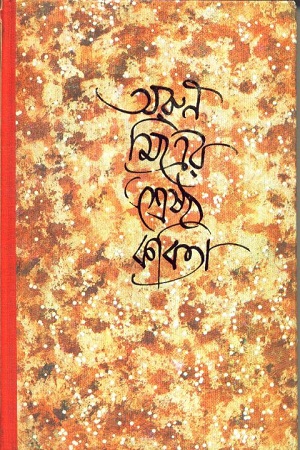 অরুণ
মিত্রের
শ্রেষ্ঠ
কবিতা